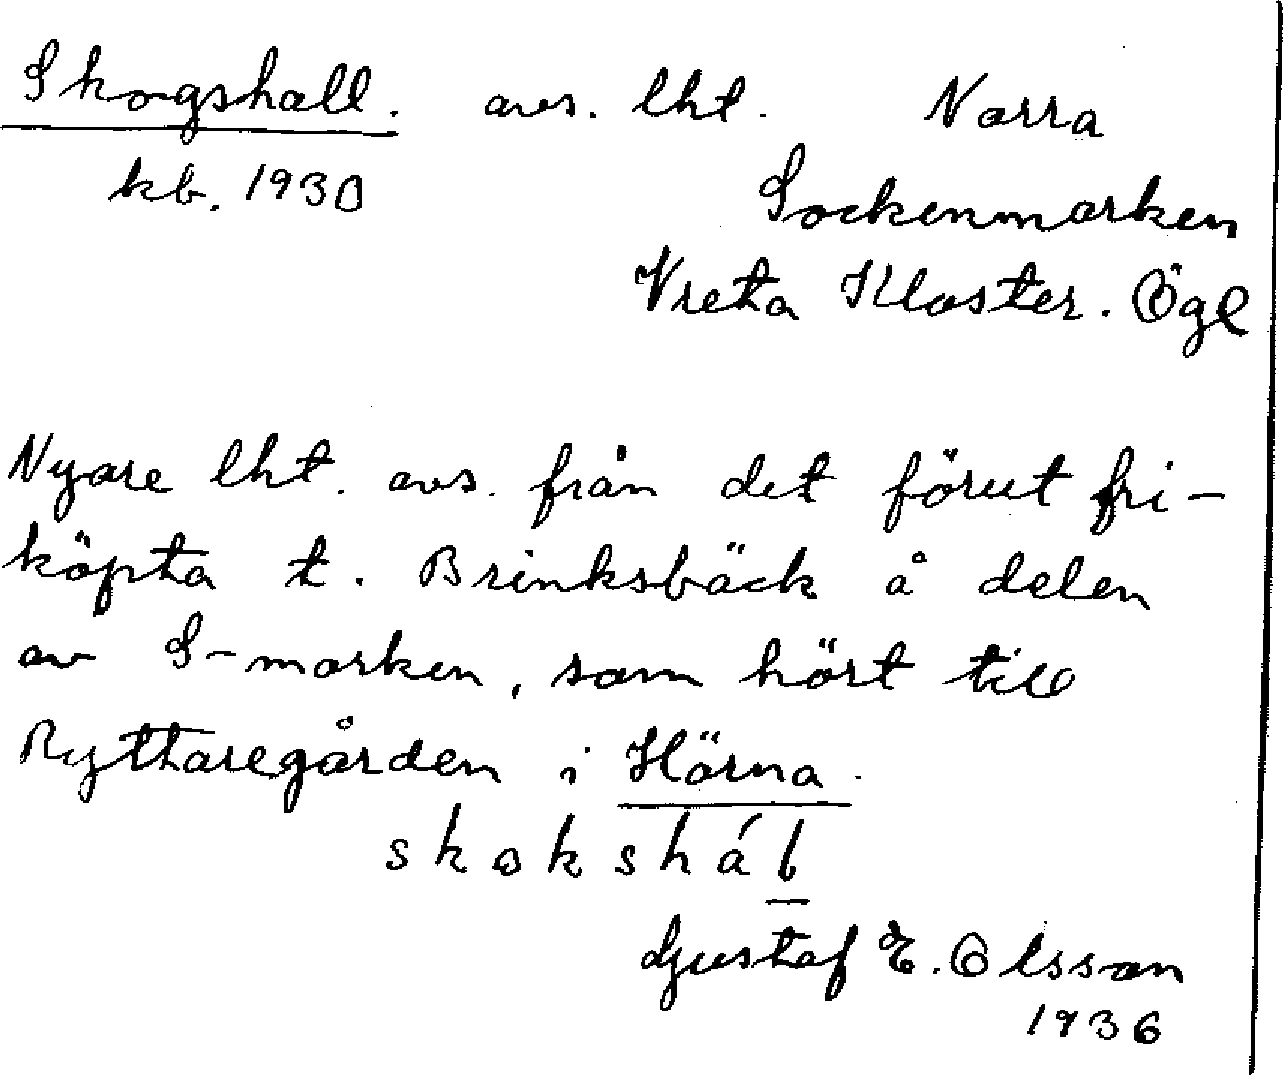 Skogshall. avs. lht. Norra
kb. 1930 Sockenmarken
Vreta Kloster. Ögl
Nyare lht. avs. från det förut fri-
köpta t. Brinksbäck å delen
av S-marken, som hört till
Ryttaregården i Härna.
skokshá
Gustaf E. Olsson
1936